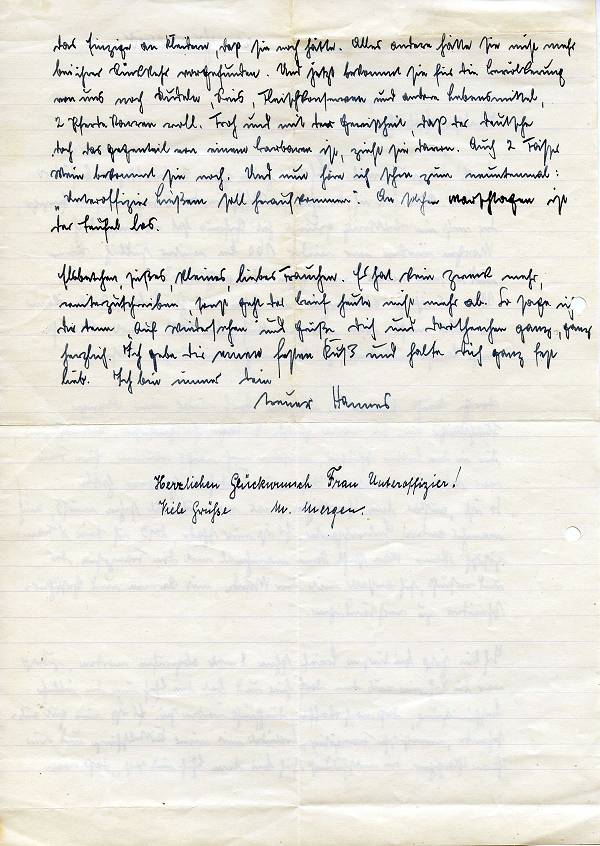 das Einzige an Kleidern, daß sie noch hätte. Alles andere hätte sie nicht mehr
bei ihrer Rückkehr vorgefunden. Und jetzt bekommt sie für die Bevölkerung
von uns noch Nudeln, Reis, Fleischkonserven und andere Lebensmittel,
2 Pferdekarren voll. Froh und mit der Gewissheit, daß der Deutsche
doch das Gegenteil von einem Barbaren ist, zieht sie davon. Auch 2 Fässer
Wein bekommt sie noch. Und nun höre ich schon zum neuntenmal:
„Unteroffizier soll heraufkommen". An solchen Marschtagen ist
der Teufel los.
Elsbethchen, süßes, kleines, liebes Frauchen. Es hat kein Zweck mehr,
weiterzuschreiben, sonst geht der Brief heute nicht mehr ab. So sage ich
dir denn „Auf Wiedersehen" und grüße Dich und ganz, ganz
herzlich. Ich gebe dir einen festen Kuß und halte Dich ganz fest
lieb. Ich bin immer dein
treuer Hannes
Herzlichen Glückwunsch Frau Unteroffizier!
Viele Grüße M. Mergen.